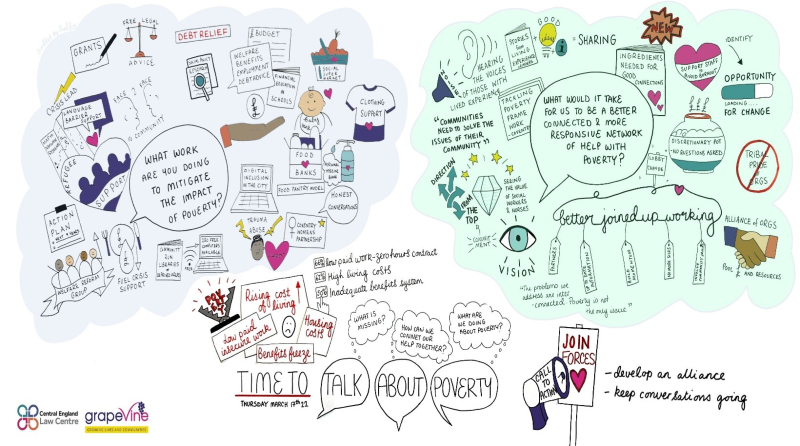 GRANTS
FREE LEGAL
ADVICE
DEBT RELIEF
£ BUDGET
WELFARE
BENEFITS
EMPLOYMENT
DEBT ADVICE
FINANCIAL
EDUCATION
IN
SCHOOLS
SOCIAL
SUPER
MARKET
CLOTHING
SUPPORT
CRISIS LEAD
LANGUAGE
BARRIERS
SUPPORT
FACE 2 FACE
IN COMMUNITY
REFUGEE
SUPPORT
WHAT WORK
ARE YOU DOING
TO MITIGATE
THE IMPACT
OF POVERTY?
£
BABY
FOOD
BANKS
FOOD PANTRY MODEL
HONEST
CONVERSATIONS
DIGITAL
INCLUSION
IN THE CITY
TRAUMA
ABUSE
COVENTRY
WOMENS
PARTNERSHIP
ACTION
PLAN
NEXT 5 YEARS
WELFARE REFORM
GROUP
FUEL CRISIS
SUPPORT
COMMUNITY
RUN
LIBRARIES
COMPUTERS
AVAILABLE
HEARING
THE VOICES
OF THOSE WITH
LIVED EXPERIENCE
STORIES
OUR LIVING
EXPERIENCE
LEADERS
GOOD
SHARING
i
NEW
INGREDIENTS
NEEDED FOR
GOOD
CONNECTIONS
SUPPORT STAFF
AVOID BURNOUT
IDENTIFY
OPPORTUNITY
LOADING....
FOR CHANGE
"COMMUNITIES
NEED TO SOLVE THE
ISSUES OF THEIR
COMMUNITY"
TACKLING
POVERTY
FRAME
WORK
WHAT WOULD IT TAKE
FOR US TO BE A BETTER
CONNECTED & MORE
RESPONSIVE NETWORK
OF HELP WITH
POVERTY?
DISCRETIONARY POT
-NO QUESTIONS AGREED
TRIBAL
PRIDE
ORGS
LOBBY
CHANGE
DIRECTION
FROM
THE TOP
COMMITMENT
SEEING THE VALUE
OF SOCIAL
WORKERS & NURSES
VISION
better joined up working
PARTNERS
ALLIANCE OF ORGS
POOL
AND RESOURCES
"The problems we
address are inter
connected. Poverty is not
the only issue"
low paid work-zero hours contract
High living costs
Inadequate benefits system
PAY
Rising cost
of living
Low paid
insecure work
Housing
costs
Benefits freeze
WHAT IS
MISSING?
HOW CAN WE
CONNECT OUR
HELP TOGETHER?
WHAT ARE
WE DOING
ABOUT POVERTY?
TIME TO TALK ABOUT POVERTY
THURSDAY MARCH 17th 22
CALL
TO
ACTION
JOIN
FORCES
- develop an alliance
- keep conversations going
Central England
Law Centre
grapevine